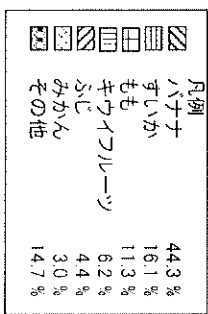 凡例
バナナ 44.3 %
すいか 16.1 %
もも 11.3 %
キウイフルーツ 6.2 %
ふじ 4.4 %
みかん 3.0 %
その他 14.7 %